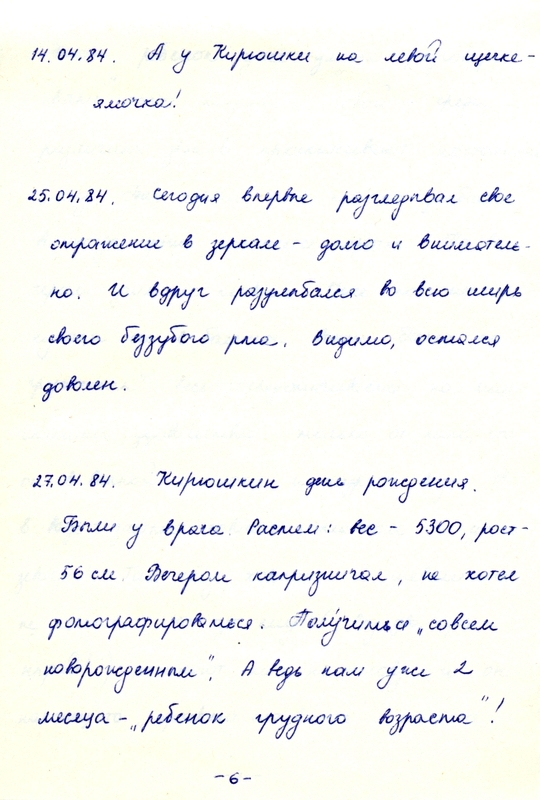 14.04.84. А у Кирюшки на левой щечке-
ямочка!
25.04.84. Сегодня впервые разглядывал свое
отражение в зеркале - долго и вниматель-
но. И вдруг разулыбался во всю ширь
своего беззубого рта. Видимо, остался
доволен.
27.04.84. Кирюшкин день рождения.
Были у врача. Растем: вес - 5300, рост-
56 см. Вечером капризничал, не хотел
фотографироваться. Получился „совсем
новорожденным". А ведь нам уже 2
месяца - „ребенок грудного возраста"!
-6-